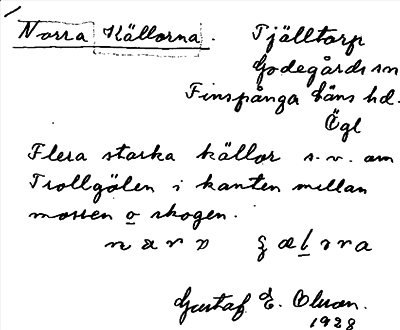 Norra Källorna. Tjälltorp
Godegårds sn
Finspånga läns hd.
Ögl
Flera starka källor s.v. om
Trollgölen i kanten mellan
mossen o skogen.
Gustaf E. Olson.
1928